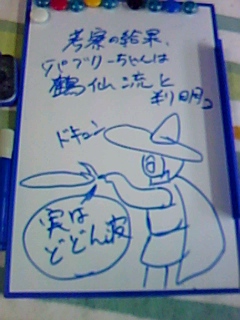 考察の結果、
パブリーちゃんは
鶴仙流と
判明。
ドキューン
実は
どどん波